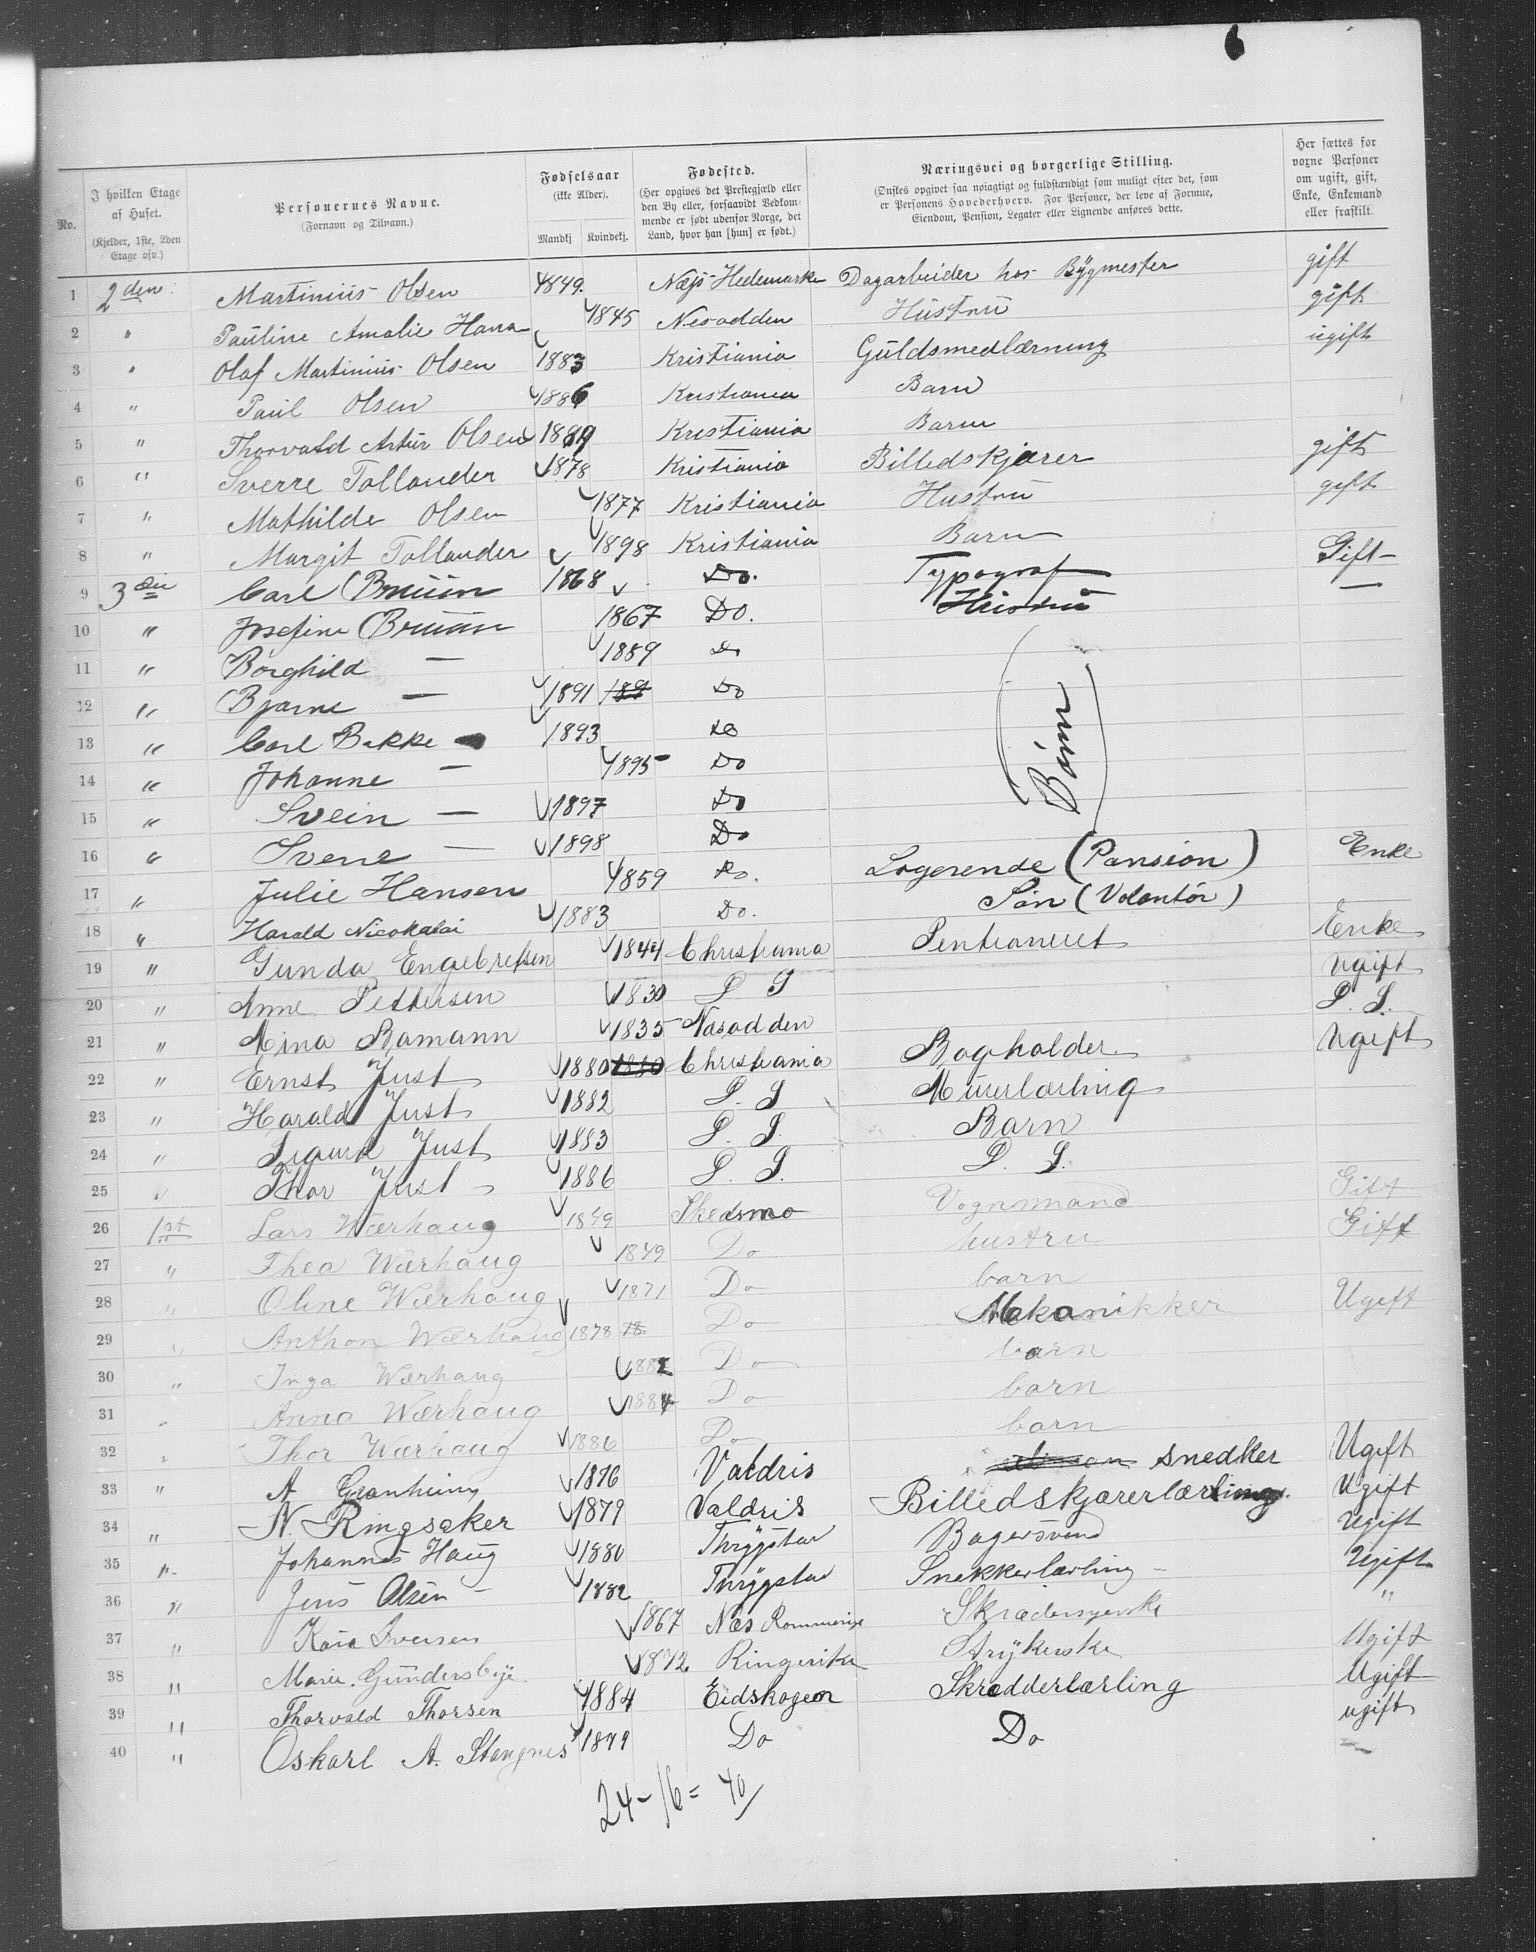 6
No.
I hvilken Etage af Huset. (Kjelder, 1ste, 2den Etage osv.)
Personernes Navne. (Fornavn og Tilnavn.)
Fødselsaar (ikke Alder).
Mandkj. Kvindekj.
Fødested. (Her opgives det Prestegjæld eller den By eller, forsaavidt Vedkommende er født udenfor Norge, det Land, hvor han [hun] er født.)
Næringsvei og borgerlige Stilling. (Ønskes opgivet saa nøiagtigt og fuldstændigt som muligt efter det, som er Personens Hovederhverv. For Personer, der leve af Formue, Eiendom, Pension, Legater eller Lignende anføres dette.
Her sættes for voxne Personer om ugift, gift, Enke, Enkemand eller fraskilt.
1 2den Martinius Olsen 1849. Næs Hedemarken Dagarbeider hos Bygmester gift
2 " Pauline Amalie Hansen 1845 Nesodden Hustru gift
3 " Olaf Martinius Olsen 1883 Kristiania Guldsmedlærning ugift
4 " Paul Olsen 1886 Kristiania Barn
5 " Thorvald Artur Olsen 1889 Kristiania Barn
6 " Sverre Tollander 1878 Kristiania Billedskjærer gift
7 " Mathilde Olsen 1877 Kristiania Hustru gift
8 " Margit Tollander 1898 Kristiania Barn
9 3die Carl Bruun 1868 Do. Typograf Gift
10 " Josefine Bruun 1867 Do. Hustru —
11 " Borghild — 1889 Do
12 " Bjarne — 1891 189 Do
13 " Carl Bakke 1893 Do
14 " Johanne — 1895 Do (Børn)
15 " Svein — 1897 Do
16 " Sverre — 1898 Do
17 " Julie Hansen 1859 Do. Logerende (Pansion) Enke
18 " Harald Nicokalai 1883 Do. Søn (Volontør)
19 " Gunda Engebretsen 1844 Christiania Pentioneret Enke
20 " Anne Pettersen 1830 D D Ugift
21 " Mina Ramann 1835 Nasodden D D.
22 " Ernst Just 1880 1880 Christiania Bogholder Ugift
23 " Harald Just 1882 D. D Murerlærling
24 " Sigurd Just 1883 D. D. Barn
25 " Thor Just 1886 D. D. D. D.
26 1st Lars Wærhaug 1849 Skedsmo Vognmand Gift
27 " Thea Wærhaug 1849 Do hustru Gift
28 " Oline Wærhaug 1871 Do barn
29 " Anthon Wærhaug 1878 18 Do Mekanikker Ugift
30 " Inga Wærhaug 1882 Do barn
31 " Anna Wærhaug 1884 Do barn
32 " Thor Wærhaug 1886 Do barn
33 " A Granheim 1876 Valdris snedker Ugift
34 " N. Ringsaker 1879 Valdris Billedskjærerlærling. Ugift
35 " Johannes Haug 1880 Thrygstad Bagersvend Ugift
36 " Jens Olsen 1882 Thrygstad Snekkerlærling Ugift
37 " Kaia Iversen 1867 Næs Rommerige Skrædersyerske "
38 " Marie Gundersbye 1872 Ringerike Strykerske Ugift
39 " Thorvald Thorsen 1884 Eidskogen Skrædderlærling Ugift
40 " Oskarl A. Stangnes 1879 Do Do ugift
24 - 16 = 40